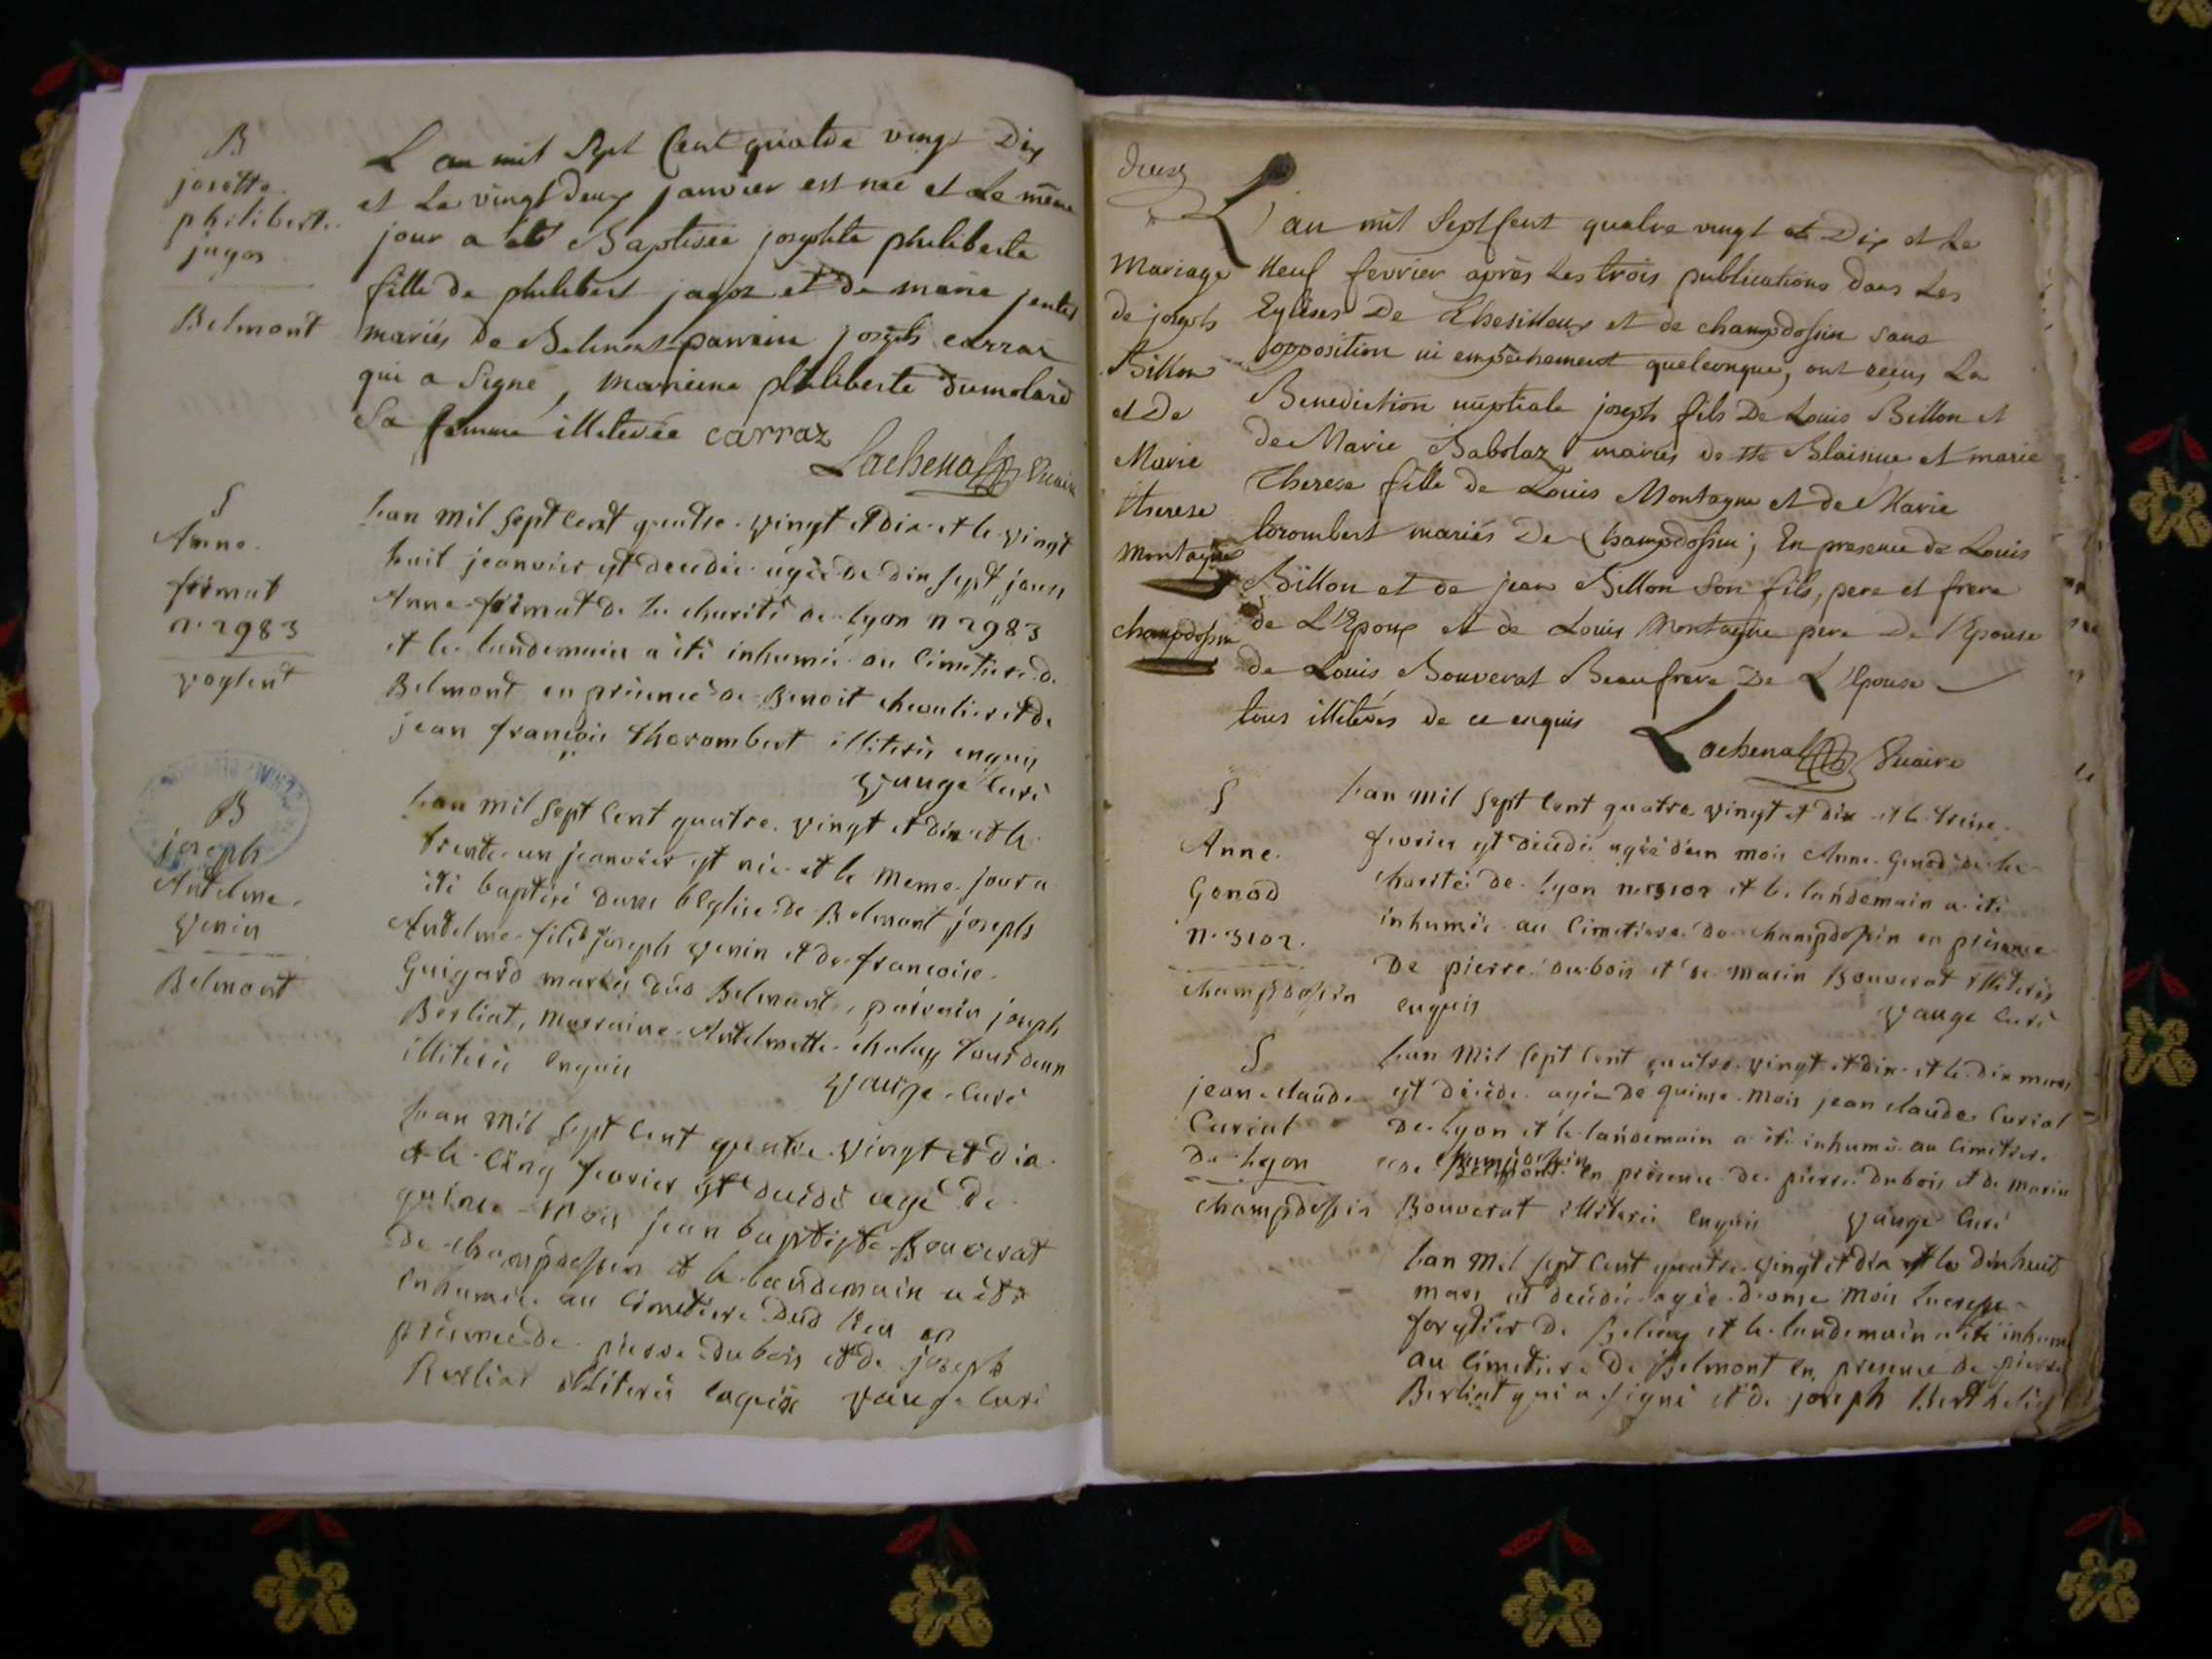 B
josette
philiberte
jagos
Belmont
L an mil Sept Cent quatre vingt Dix
et Le vingt deux janvier est née et Le même
jour a été Baptisée josephte philiberte
fille de philibert jagoz et de marie
mariés de Belmont parrain joseph carraz
qui a Signé, Maraine philiberte Dumolard
Sa femme illeterée carraz
Lachenal Vicaire
S
Anne
frimat
n. 2983
voglent
Lan mil sept cent quatre vingt et dix et le vingt
huit jeanvier est decedée agée de dix sept jours
Anne frimat de la charité de lyon n 2983
et le landemain a été inhumée au cimetiere de
Belmont en présence de Benoit chevalier et de
jean françois therombert illiterés enquis
Vauge Curé
B
joseph
Antelme
Venin
Belmont
Lan mil sept cent quatre vingt et dix et le
trente un jeanvier est né et le meme jour a
été baptisé dans l'Eglise de Belmont joseph
Antelme fils d joseph Venin et de françoise
Guigard mariés dud Belmont, parrain joseph
Berliat, marraine Antelmette chaley tous deux
illiterés enquis
Vauge Curé
Lan mil sept cent quatre vingt et dix
et le cinq fevrier est decedé agé de
quinse mois jean baptiste Bouverat
de champdossin et le landemain a été
inhumé au cimetiere dud lieu en
présence de pierre dubois et de joseph
Berliat illiterés enquis Vauge Curé
deux
L'an mil Sept Cent quatre vingt et Dix et Le
Mariage Neuf fevrier après Les trois publications dans Les
de joseph Eglises De Thesillieux et de champdossin sans
Billon opposition ni empêchement quelconque, ont reçus La
et De Benediction nuptiale joseph fils De Louis Billon et
Marie de Marie Babolaz mariés de Ste Blaisine et marie
therese Therese fille de Louis Montagne et de Marie
Montagne torombert mariés De Champdossin; En presence de Louis
Billon et de jean Billon Son fils, pere et frere
champdossin de L'Epoux et de Louis Montagne pere De l'Epouse
de Louis Bouverat Beaufrere De L'Epouse
tous illiterés de ce enquis
Lachenal Vicaire
S
Anne
Genod
n. 3102
champdossin
Lan mil sept cent quatre vingt et dix et le treise
fevrier est décedée agée d'un mois Anne Genod de la
charité de lyon n. 3102 et le landemain a été
inhumée au cimetiere de champdossin en présence
De pierre dubois et de marin Bouverat illiterés
enquis
Vauge Curé
S
jean claude
Curial
De lyon
champdossin
Lan mil sept cent quatre vingt et dix et le dix mars
est décédé agé de quinse mois jean claude Curial
De lyon et le landemain a été inhumé au cimetiere
champdossin
de Belmont en présence de pierre dubois et de marin
Bouverat illiterés enquis Vauge Curé
Lan mil sept cent quatre vingt et dix et le dixhuit
mars est decédée agée d'onse mois
de et le landemain a été inhumé
au cimetiere De Belmont en presence de pierre
Berliat qui a signé et de joseph